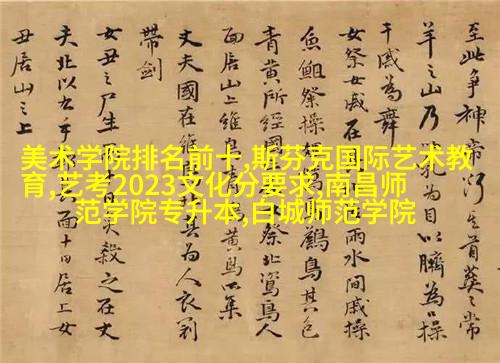 至此争神帝斷其首葬之常
羊之山乃以乳為目以臍為口操
干戚為舞
女祭女戚在雨水間戚操
魚䱉祭操鳥其色
青黃所經國祭北鳥人
面居山上維鳥黃鳥所集
丈夫國在維其為人衣冠
帶劍
女丑之尸生炙殺之在丈
夫北以右手面十日居上女
丑居山之上
美术学院排名前十,斯芬克国际艺术教
育,艺考2023文化分要求,南昌师
范学院专升本,白城师范学院